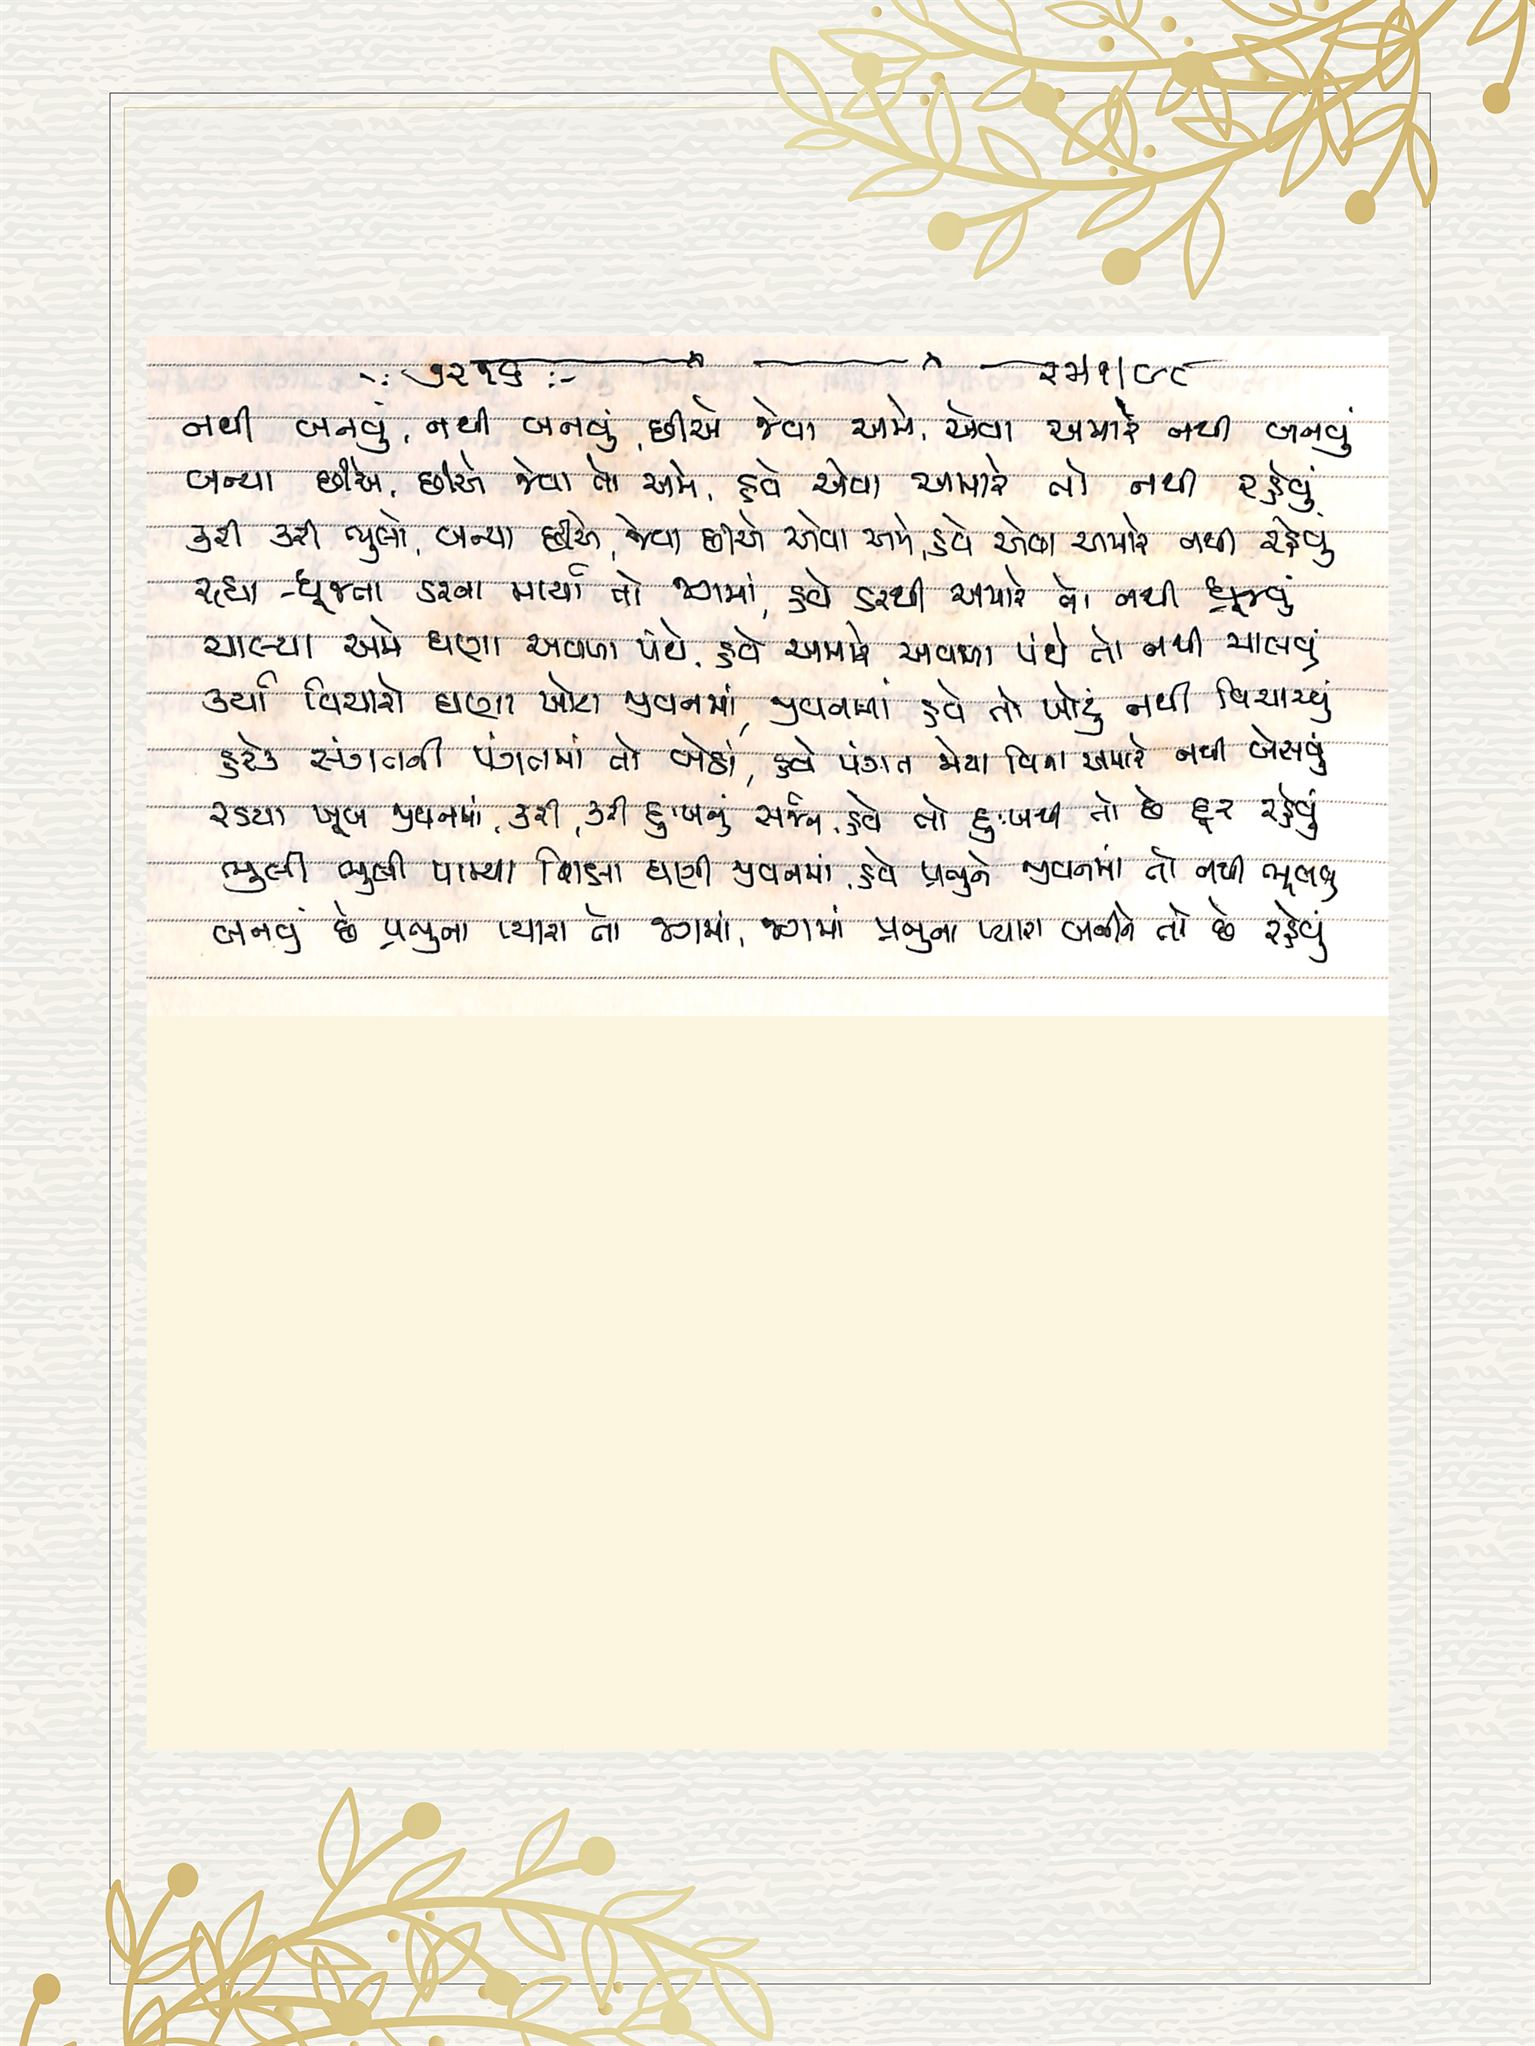 નથી બનવું, નથી બનવું, છીએ જેવા અમે, એવા અમારે નથી બનવું
બન્યા છીએ, છીએ જેવા તો અમે, હવે એવા અમારે તો નથી રહેવું
કરી કરી ભુલો, બન્યા છીએ, જેવા છીએ એવા અમે, હવે એવા અમારે નથી રહેવું
રહ્યા ધ્રૂજતા ડરના માર્યા તો જગમાં, હવે ડરથી અમારે તો નથી ધ્રૂજવું
ચાલ્યા અમે ઘણા અવળા પંથે, હવે અમારે અવળા પંથે તો નથી ચાલવું
કર્યા વિચારો ઘણા ખોટા જીવનમાં, જીવનમાં હવે તો ખોટું નથી વિચારવું
હરેક સંગતની પંગતમાં તો બેઠાં, હવે પંગત મેળવ્યા વિના અમારે નથી બેસવું
રડયા ખૂબ જીવનમાં, કરી, કરી દુઃખનું સર્જન, હવે તો દુઃખથી તો છે દૂર રહેવું
ભુલી ભુલી પામ્યા શિક્ષા ઘણી જીવનમાં, હવે પ્રભુને જીવનમાં તો નથી ભૂલવુ
બનવું છે પ્રભુના પ્યારા તો જગમાં, જગમાં પ્રભુના પ્યારા બનીને તો છે રહેવું